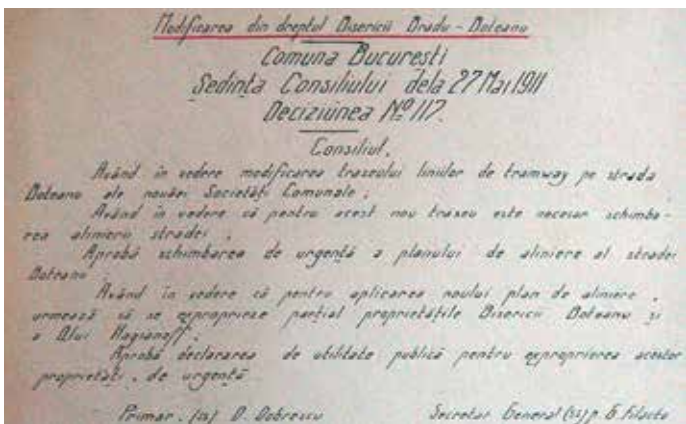 Modificarea din dreptul Bisericii Bradu-Boteanu
Comuna Bucuresti
Ședința Consiliului dela 27 Mai 1911
Deciziunea Nº 117.
Consiliul,
Având în vedere modificarea traseului liniilor de tramway pe strada
Boteanu ale nouăei Societăți Comunale;
Având în vedere că pentru acest nou traseu este necesar schimba-
rea alinierii stradei,
Aprobă schimbarea de urgență a planului de aliniere al stradei
Boteanu
Având în vedere că pentru aplicarea noului plan de aliniere,
urmează să se exproprieze parțial proprietățile Bisericii Boteanu și
a Dlui Hagianoff;
Aprobă declararea de utilitate publică pentru exproprierea acestor
proprietăți, de urgență
Primar, (ss) D. Dobrescu
Secretar General (ss) p. G. Filactu